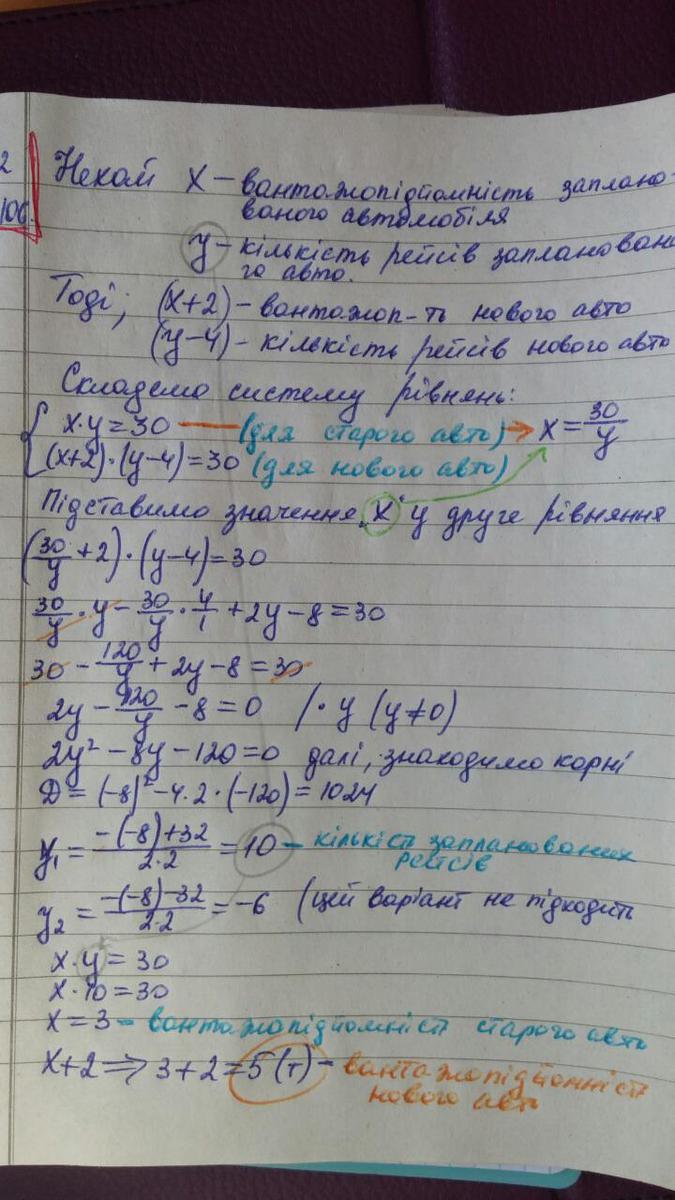 2
106.
Нехай х – вантажопідйомність заплано-
ваного автомобіля
y – кількість рейсів запланован
го авто.
Тоді; (х+2) – вантажоп-ть нового авто
(y–4) – кількість рейсів нового авто
Складемо систему рівнянь:
{ х·y=30 — (для старого авто) → х = 30/y
(х+2)·(y–4)=30 (для нового авто)
Підставимо значення "х" у друге рівняння
(30/y + 2)·(y–4)=30
30/y · y – 30/y · 4/1 + 2y – 8 = 30
30 – 120/y + 2y – 8 = 30
2y – 120/y – 8 = 0 /· y (y≠0)
2y² – 8y – 120 = 0 далі, знаходимо корні
D = (–8)² – 4·2·(–120) = 1024
y₁ = –(–8)+32 / 2·2 = 10 – кількість запланованих
рейсів
y₂ = –(–8)–32 / 2·2 = –6 (цей варіант не підходить
х·y = 30
х·10 = 30
х = 3 – вантажопідйомність старого авто
х+2 ⇒ 3+2 = 5(т) – вантажопідйомність
нового авто